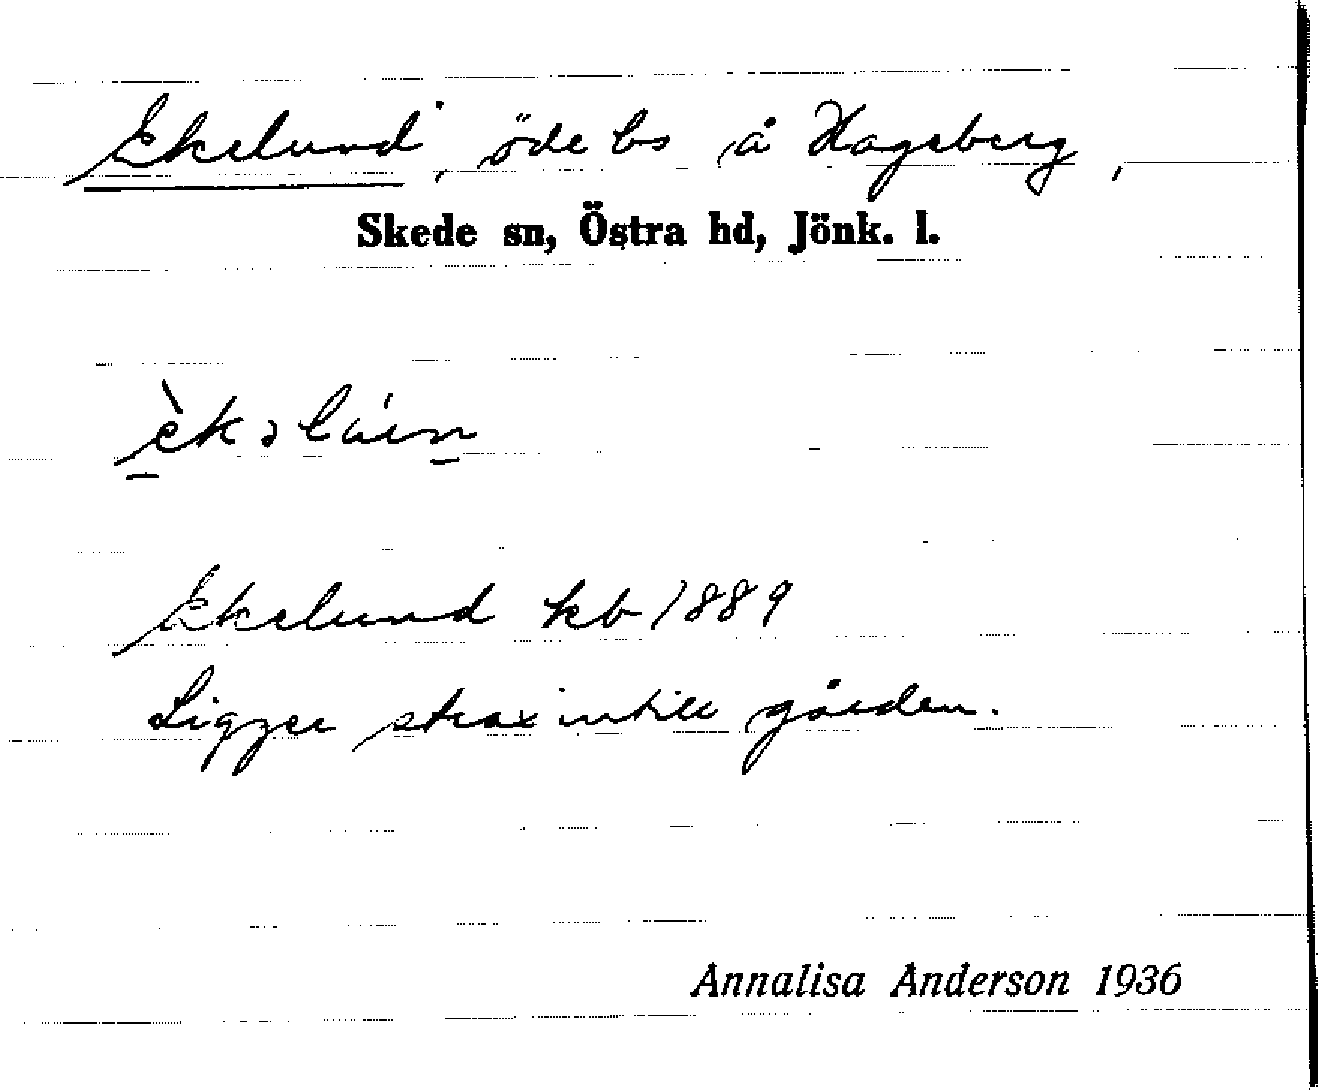 Ekelund, öde bs å Hageberg,
Skede sn, Östra hd, Jönk. l.
Ekelund kb 1889
Ligger strax intill gården.
Annalisa Anderson 1936